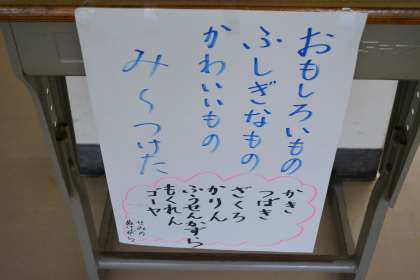 おもしろいもの
ふしぎなもの
かわいいもの
み〜つけた
かき
つばき
ざくろ
かりん
ふうせんかずら
もくれん
ゴーヤ
せみの
ぬけがら